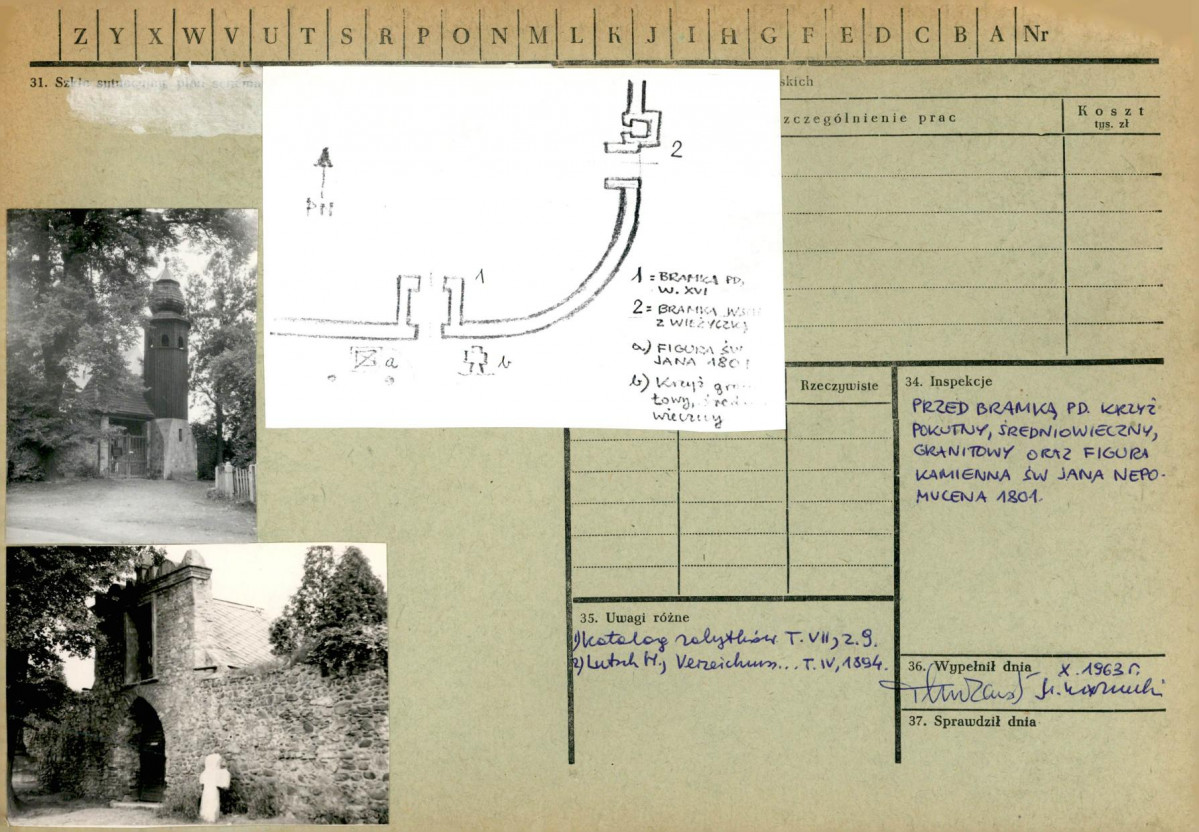 Z Y X W V U T S R P O N M L K J I H G F E D C B A Nr
31.
skich
zczególnienie prac
Koszt
tys. zł
2
1
1 = BRAMKA PD,
W. XVI
2 = BRAMKA
Z WIEŻYCZKĄ
a) FIGURA ŚW
JANA 1801
b) Krzyż gra
towy, śred
wieczny
a
b
Rzeczywiste
34. Inspekcje
PRZED BRAMKĄ PD. KRZYŻ
POKUTNY, ŚREDNIOWIECZNY,
GRANITOWY ORAZ FIGURA
KAMIENNA ŚW JANA NEPO-
MUCENA 1801.
35. Uwagi różne
1) Katalog zabytków T. VII, z. 9.
2) Lutsch H., Verzeichniss... T. IV, 1894.
36. Wypełnił dnia X. 1963 r.
37. Sprawdził dnia